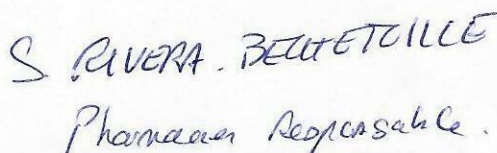 S. RIVERA-BELLETOILLE
Pharmacien Responsable.